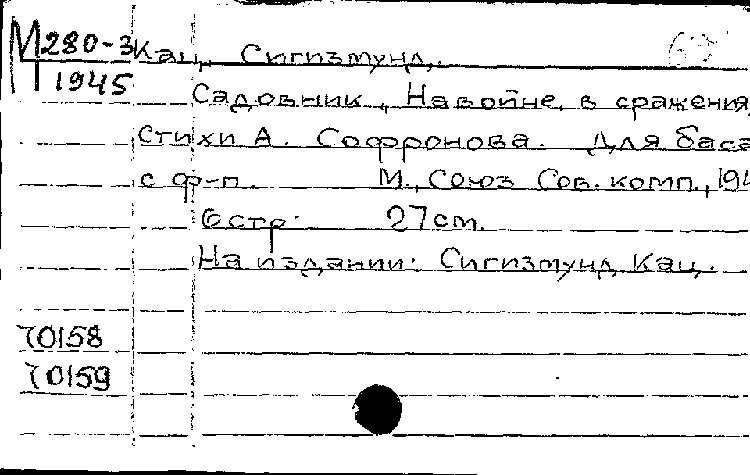 М280-3 Кац, Сигизмунд.
1945
Садовник, На войне, в сражения
стихи А. Софронова. Для баса
с ф-п. М., Союз Сов. комп., 194
6 стр. 27 см.
На издании: Сигизмунд Кац.
70158
70159